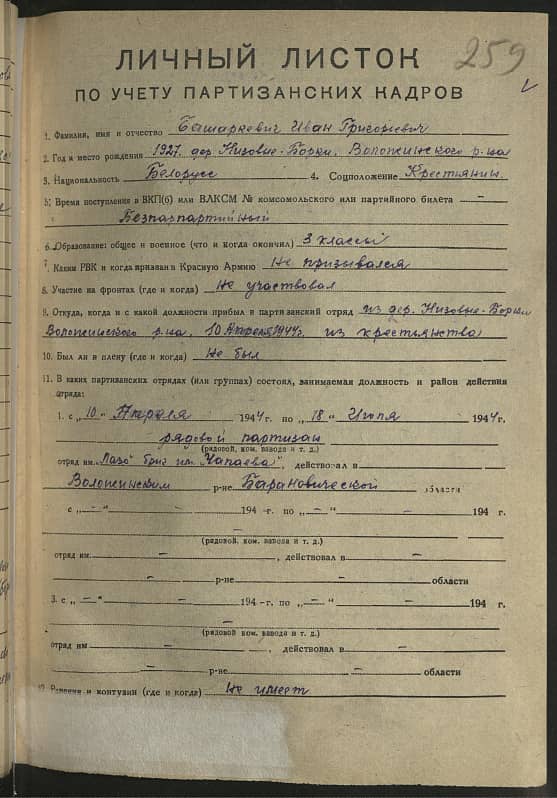 259
ЛИЧНЫЙ ЛИСТОК
ПО УЧЕТУ ПАРТИЗАНСКИХ КАДРОВ
1. Фамилия, имя и отчество Башаркевич Иван Григорьевич
2. Год и место рождения 1927. дер Низовые-Борки. Воложинского р-на
3. Национальность Белорусс 4. Соцположение Крестьянин.
5. Время поступления в ВКП(б) или ВЛКСМ № комсомольского или партийного билета —
Безпарпартийный
6. Образование: общее и военное (что и когда окончил) 3 классы
7. Каким РВК и когда призван в Красную Армию Не призывался
8. Участие на фронтах (где и когда) Не участвовал
9. Откуда, когда и с какой должности прибыл в партизанский отряд из дер. Низовые-Борки
Воложинского р-на. 10 Апреля 1944г. из крестьянства
10. Был ли в плену (где и когда) Не был
11. В каких партизанских отрядах (или группах) состоял, занимаемая должность и район действия
отряда:
1. с „10" Апреля 1944 г. по „18" Июля 1944 г.
рядовой партизан
(рядовой, ком. взвода и т. д.)
отряд им. „Лазо" бриг им. Чапаева", действовал в
Воложинском р-не Барановической области
с „—" — 194 -г. по „—" — 194 г.
(рядовой, ком. взвода и т. д.)
отряд им. — , действовал в —
— р-не — области
3. с „—" — 194 -г. по „—" — 194 г.
—
(рядовой ком. взвода и т. д.)
отряд им — , действовал в —
— р-не — области
12. Ранения и контузии (где и когда) Не имеет